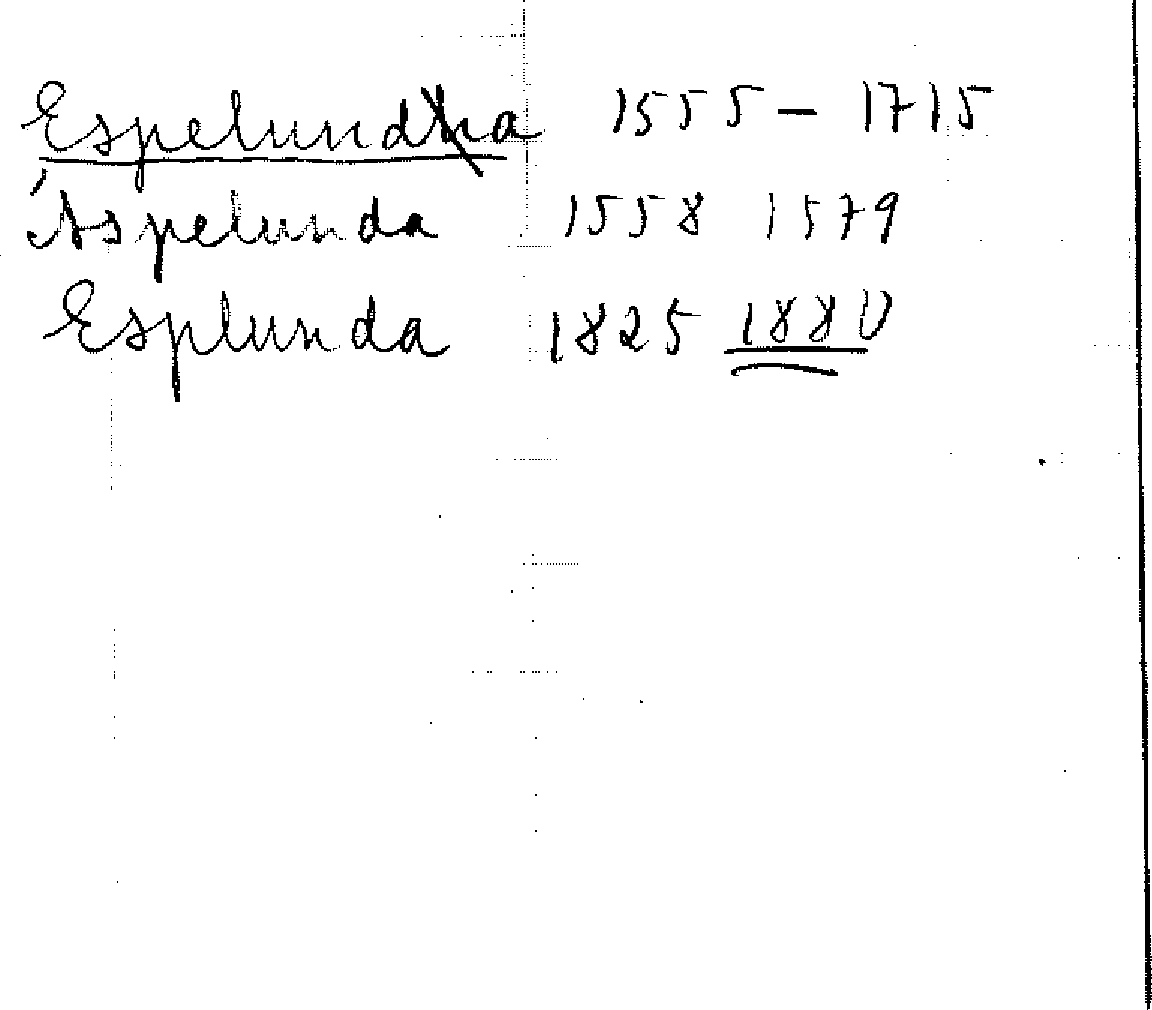 Espelunda 1555 – 1715
Äspelunda 1558 1579
Esplunda 1825 1880